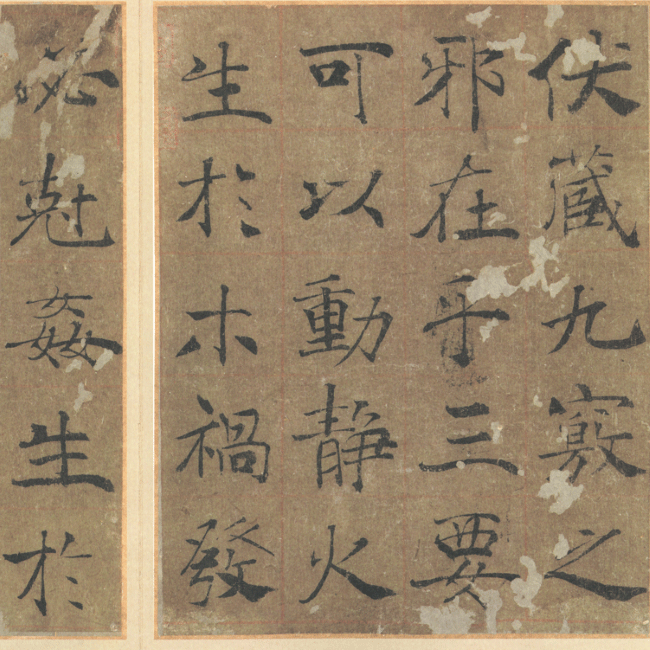 伏藏九竅之
邪在乎三要
可以動靜火
生於木禍發
必尅姦生於